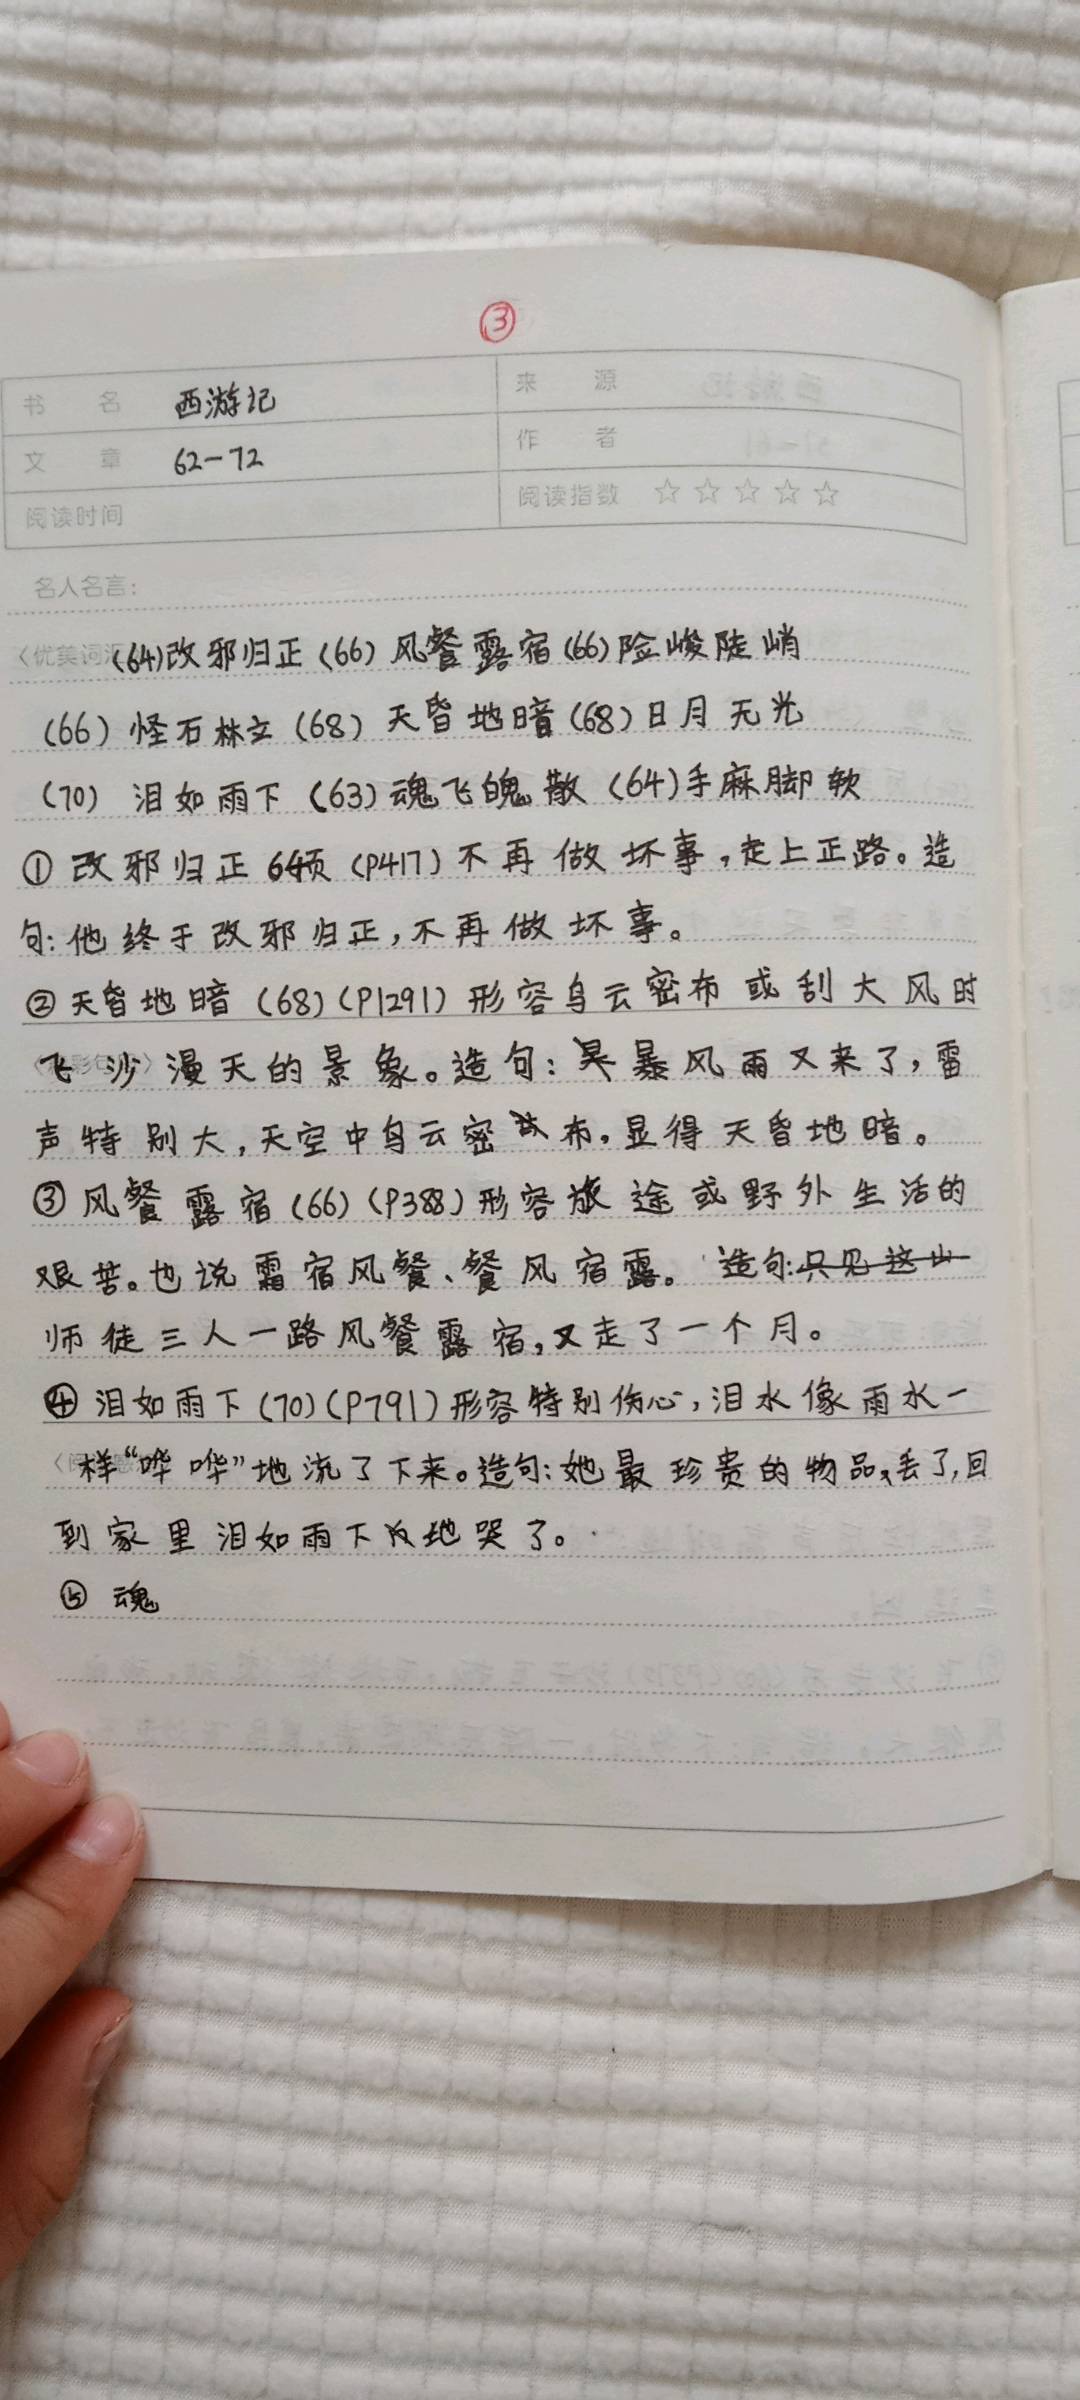 ③
书 名 西游记 来 源
文 章 62-72 作 者
阅读时间 阅读指数 ☆☆☆☆☆
名人名言:
〈优美词汇 (64)改邪归正 (66) 风餐露宿 (66) 险峻陡峭
(66) 怪石林立 (68) 天昏地暗 (68) 日月无光
(70) 泪如雨下 (63) 魂飞魄散 (64) 手麻脚软
① 改邪归正 64页 (P417) 不再做坏事,走上正路。造
句:他终于改邪归正,不再做坏事。
② 天昏地暗 (68) (P1291) 形容乌云密布或刮大风时
飞沙漫天的景象。造句:暴风雨又来了,雷
声特别大,天空中乌云密布。显得天昏地暗。
③ 风餐露宿 (66) (P388) 形容旅途或野外生活的
艰苦。也说霜宿风餐、餐风宿露。造句:只见这山
师徒三人一路风餐露宿,又走了一个月。
④ 泪如雨下 (70) (P791) 形容特别伤心,泪水像雨水一
样“哗哗”地流了下来。造句:她最珍贵的物品丢了,回
到家里泪如雨下地哭了。
⑤ 魂